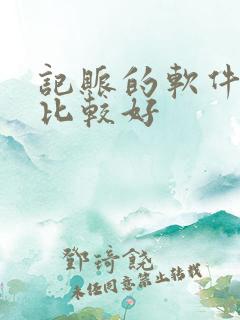 記賬的軟件
比較好
鄧琦饒
未經同意禁止轉載